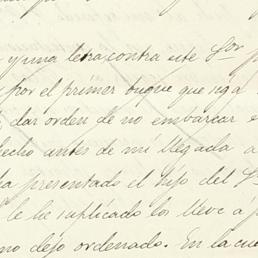 y una letra contra este Sor
por el primer buque que siga
dar orden de no embarcar
hecho antes de mi llegada a
ha presentado el hijo del
le he suplicado los lleve a
no dejo ordenado. En la